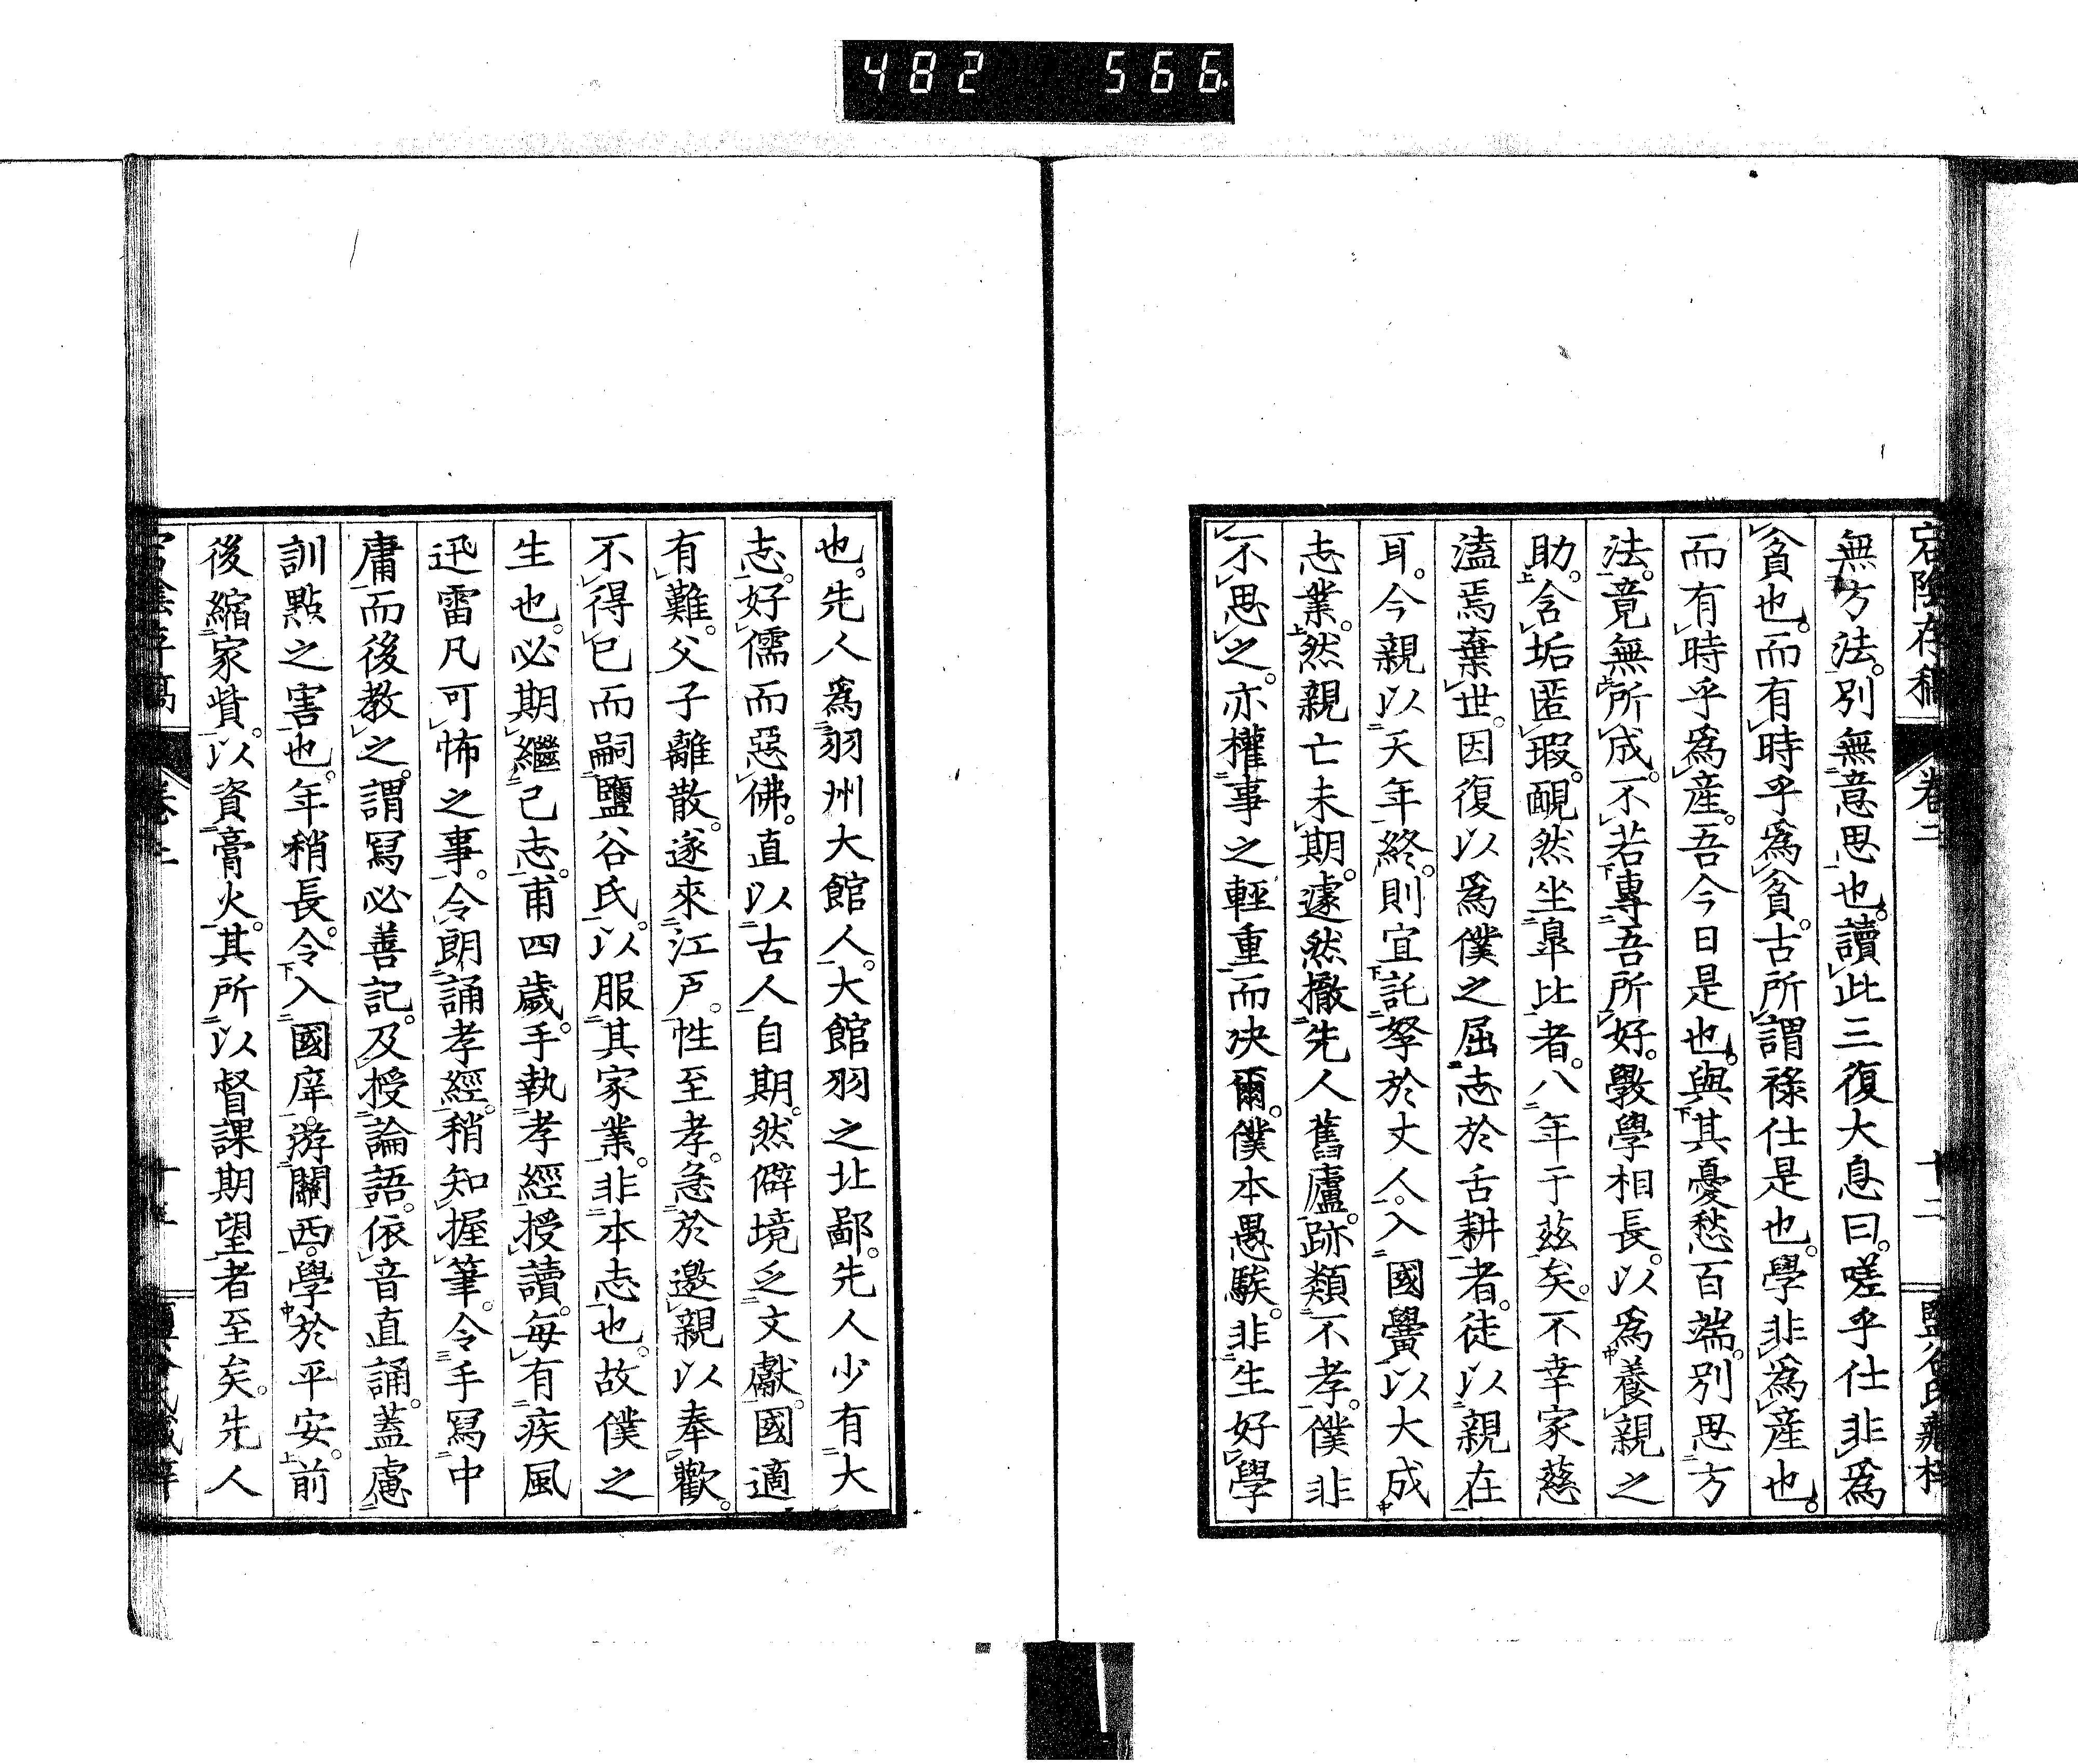 482 566
宕陰存稿 卷二 十二 鹽谷氏藏梓
無方法。別無意思也。讀此三復大息曰。嗟乎仕非為
貧也。而有時乎為貧。古所謂祿仕是也。學非為產也。
而有時乎為產。吾今日是也。與其憂愁百端。別思方
法。竟無所成。不若專吾所好。斅學相長。以為養親之
助。含垢匿瑕。靦然坐皐比者。八年于茲矣。不幸家慈
溘焉棄世。因復以為僕之屈志於舌耕者。徒以親在
耳。今親以天年終。則宜託孥於丈人。入國黌以大成
志業。然親亡未期。遽然撤先人舊廬。跡類不孝。僕非
不思之。亦權事之輕重而決爾。僕本愚騃。非生好學
也。先人為羽州大館人。大館羽之北鄙。先人少有大
志。好儒而惡佛。直以古人自期。然僻境乏文獻。國適
有難。父子離散。遂來江戶。性至孝。急於邀親以奉歡。
不得已而嗣鹽谷氏。以服其家業。非本志也。故僕之
生也。必期繼己志。甫四歲。手執孝經授讀。每有疾風
迅雷凡可怖之事。令朗誦孝經。稍知握筆。令手寫中
庸而後教之。謂寫必善記。及授論語。依音直誦。蓋慮
訓點之害也。年稍長。令入國庠。游關西。學於平安。前
後縮家貲。以資膏火。其所以督課期望者至矣。先人